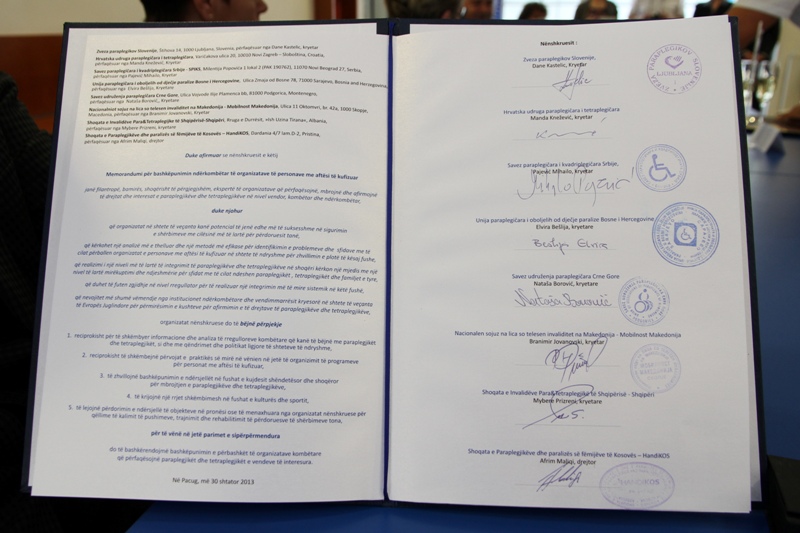 Zveza paraplegikov Slovenije, Štihova 14, 1000 Ljubljana, Slovenia, përfaqësuar nga Dane Kastelic, kryetar
Hrvatska udruga paraplegičara i tetraplegičara, Varićakova ulica 20, 10010 Novi Zagreb – Sloboština, Croatia,
përfaqësuar nga Manda Knežević, kryetar
Savez paraplegičara i kvadriplegičara Srbije - SPIKS, Milentija Popovića 1 lokal 2 (PAK 190762), 11070 Novi Beograd 27, Serbia,
përfaqësuar nga Pajević Mihailo, Kryetar
Unija paraplegičara i oboljelih od dječje paralize Bosne i Hercegovine, Ulica Zmaja od Bosne 78, 71000 Sarajevo, Bosnia and Herzegovina,
përfaqësuar nga Elvira Bešlija, Kryetare
Savez udruženja paraplegičara Crne Gore, Ulica Vojvode Ilije Plamenca bb, 81000 Podgorica, Montenegro,
përfaqësuar nga Nataša Borović, Kryetare
Nacionalniot sojuz na lica so telesen invaliditet na Makedonija - Mobilnost Makedonija, Ulica 11 Oktomvri, br. 42a, 1000 Skopje,
Macedonia, përfaqësuar nga Branimir Jovanovski, Kryetar
Shoqata e Invalidëve Para&Tetraplegjikë të Shqipërisë-Shqipëri, Rruga e Durresit, vish Uzina Tiranas, Albania,
përfaqësuar nga Mybere Prizreni, kryetare
Shoqata e Paraplegjikëve dhe paralizës së fëmijëve të Kosovës – HandiKOS, Dardania 4/7 lam.D-2, Pristina,
përfaqësuar nga Afrim Maliqi, drejtor
Duke afirmuar se nënshkruesit e këtij
Memorandumi për bashkëpunimin ndërkombëtar të organizatave të personave me aftësi të kufizuar
janë filantropë, bamirës, shoqërisht të përgjegjshëm, ekspertë të organizatave që përfaqësojnë, mbrojnë dhe afirmojnë
të drejtat dhe interesat e paraplegjikëve dhe tetraplegjikëve në nivel vendor, kombëtar dhe ndërkombëtar,
duke njohur
që organizatat në shtete të veçanta kanë potencial të jenë edhe më të suksesshme në sigurimin
e shërbimeve me cilësinë më të lartë për përdoruesit tanë,
që kërkohet një analizë më e thelluar dhe një metodë më efikase për identifikimin e problemeve dhe sfidave me të
cilat përballen organizatat e personave me aftësi të kufizuar në shtete të ndryshme për zhvillimin e plotë të kësaj fushe,
që realizimi i një niveli më të lartë të integrimit të paraplegjikëve dhe tetraplegjikëve në shoqëri kërkon një mjedis me një
nivel të lartë mirëkuptimi dhe ndjeshmërie për sfidat me të cilat ndeshen paraplegjikët, tetraplegjikët dhe familjet e tyre,
që duhet të futen zgjidhje në nivel rregullator për të realizuar një integrimin me të mire sistemin në këtë fushë,
që nevojitet më shumë vëmendje nga institucionet ndërkombëtare dhe vendimmarrësit kryesorë në shtete të veçanta
të Evropës Juglindore për përmirësimin e kushteve për afirmimin e të drejtave të paraplegjikëve dhe tetraplegjikëve,
organizatat nënshkruese do të bëjnë përpjekje
1. reciprokisht për të shkëmbyer informacione dhe analiza të rregulloreve kombëtare që kanë të bëjnë me paraplegjikët
dhe tetraplegjikët, si dhe me qëndrimet dhe politikat ligjore të shteteve të ndryshme,
2. reciprokisht të shkëmbejnë përvojat e praktikës së mirë në vënien në jetë të organizimit të programeve
për personat me aftësi të kufizuar,
3. të zhvillojnë bashkëpunimin e ndërsjellët në fushat e kujdesit shëndetësor dhe shoqëror
për mbrojtjen e paraplegjikëve dhe tetraplegjikëve,
4. të krijojnë një rrjet shkëmbimesh në fushat e kulturës dhe sportit,
5. të lejojnë përdorimin e ndërsjellë të objekteve në pronësi ose të menaxhuara nga organizatat nënshkruese për
qëllime të kalimit të pushimeve, trajnimit dhe rehabilitimit të përdoruesve të shërbimeve tona,
për të vënë në jetë parimet e sipërpërmendura
do të bashkërendojnë bashkëpunimin e përbashkët të organizatave kombëtare
që përfaqësojnë paraplegjikët dhe tetraplegjikët e vendeve të interesuara.
Në Pacug, më 30 shtator 2013
Nënshkruesit :
Zveza paraplegikov Slovenije,
Dane Kastelic, Kryetar
Hrvatska udruga paraplegičara i tetraplegičara
Manda Knežević, kryetar
Savez paraplegičara i kvadriplegičara Srbije,
Pajević Mihailo, kryetar
Unija paraplegičara i oboljelih od dječje paralize Bosne i Hercegovine
Elvira Bešlija, kryetare
Bešlija Elvira
Savez udruženja paraplegičara Crne Gore
Nataša Borović, kryetare
Nataša Borović
Nacionalen sojuz na lica so telesen invaliditet na Makedonija - Mobilnost Makedonija
Branimir Jovanovski, kryetar
Shoqata e Invalidëve Para&Tetraplegjikë të Shqipërisë - Shqipëri
Mybere Prizreni, kryetare
Shoqata e Paraplegjikëve dhe paralizës së fëmijëve të Kosovës – HandiKOS
Afrim Maliqi, drejtor
ZVEZA PARAPLEGIKOV SLOVENIJE
LJUBLJANA
HANDIKOS